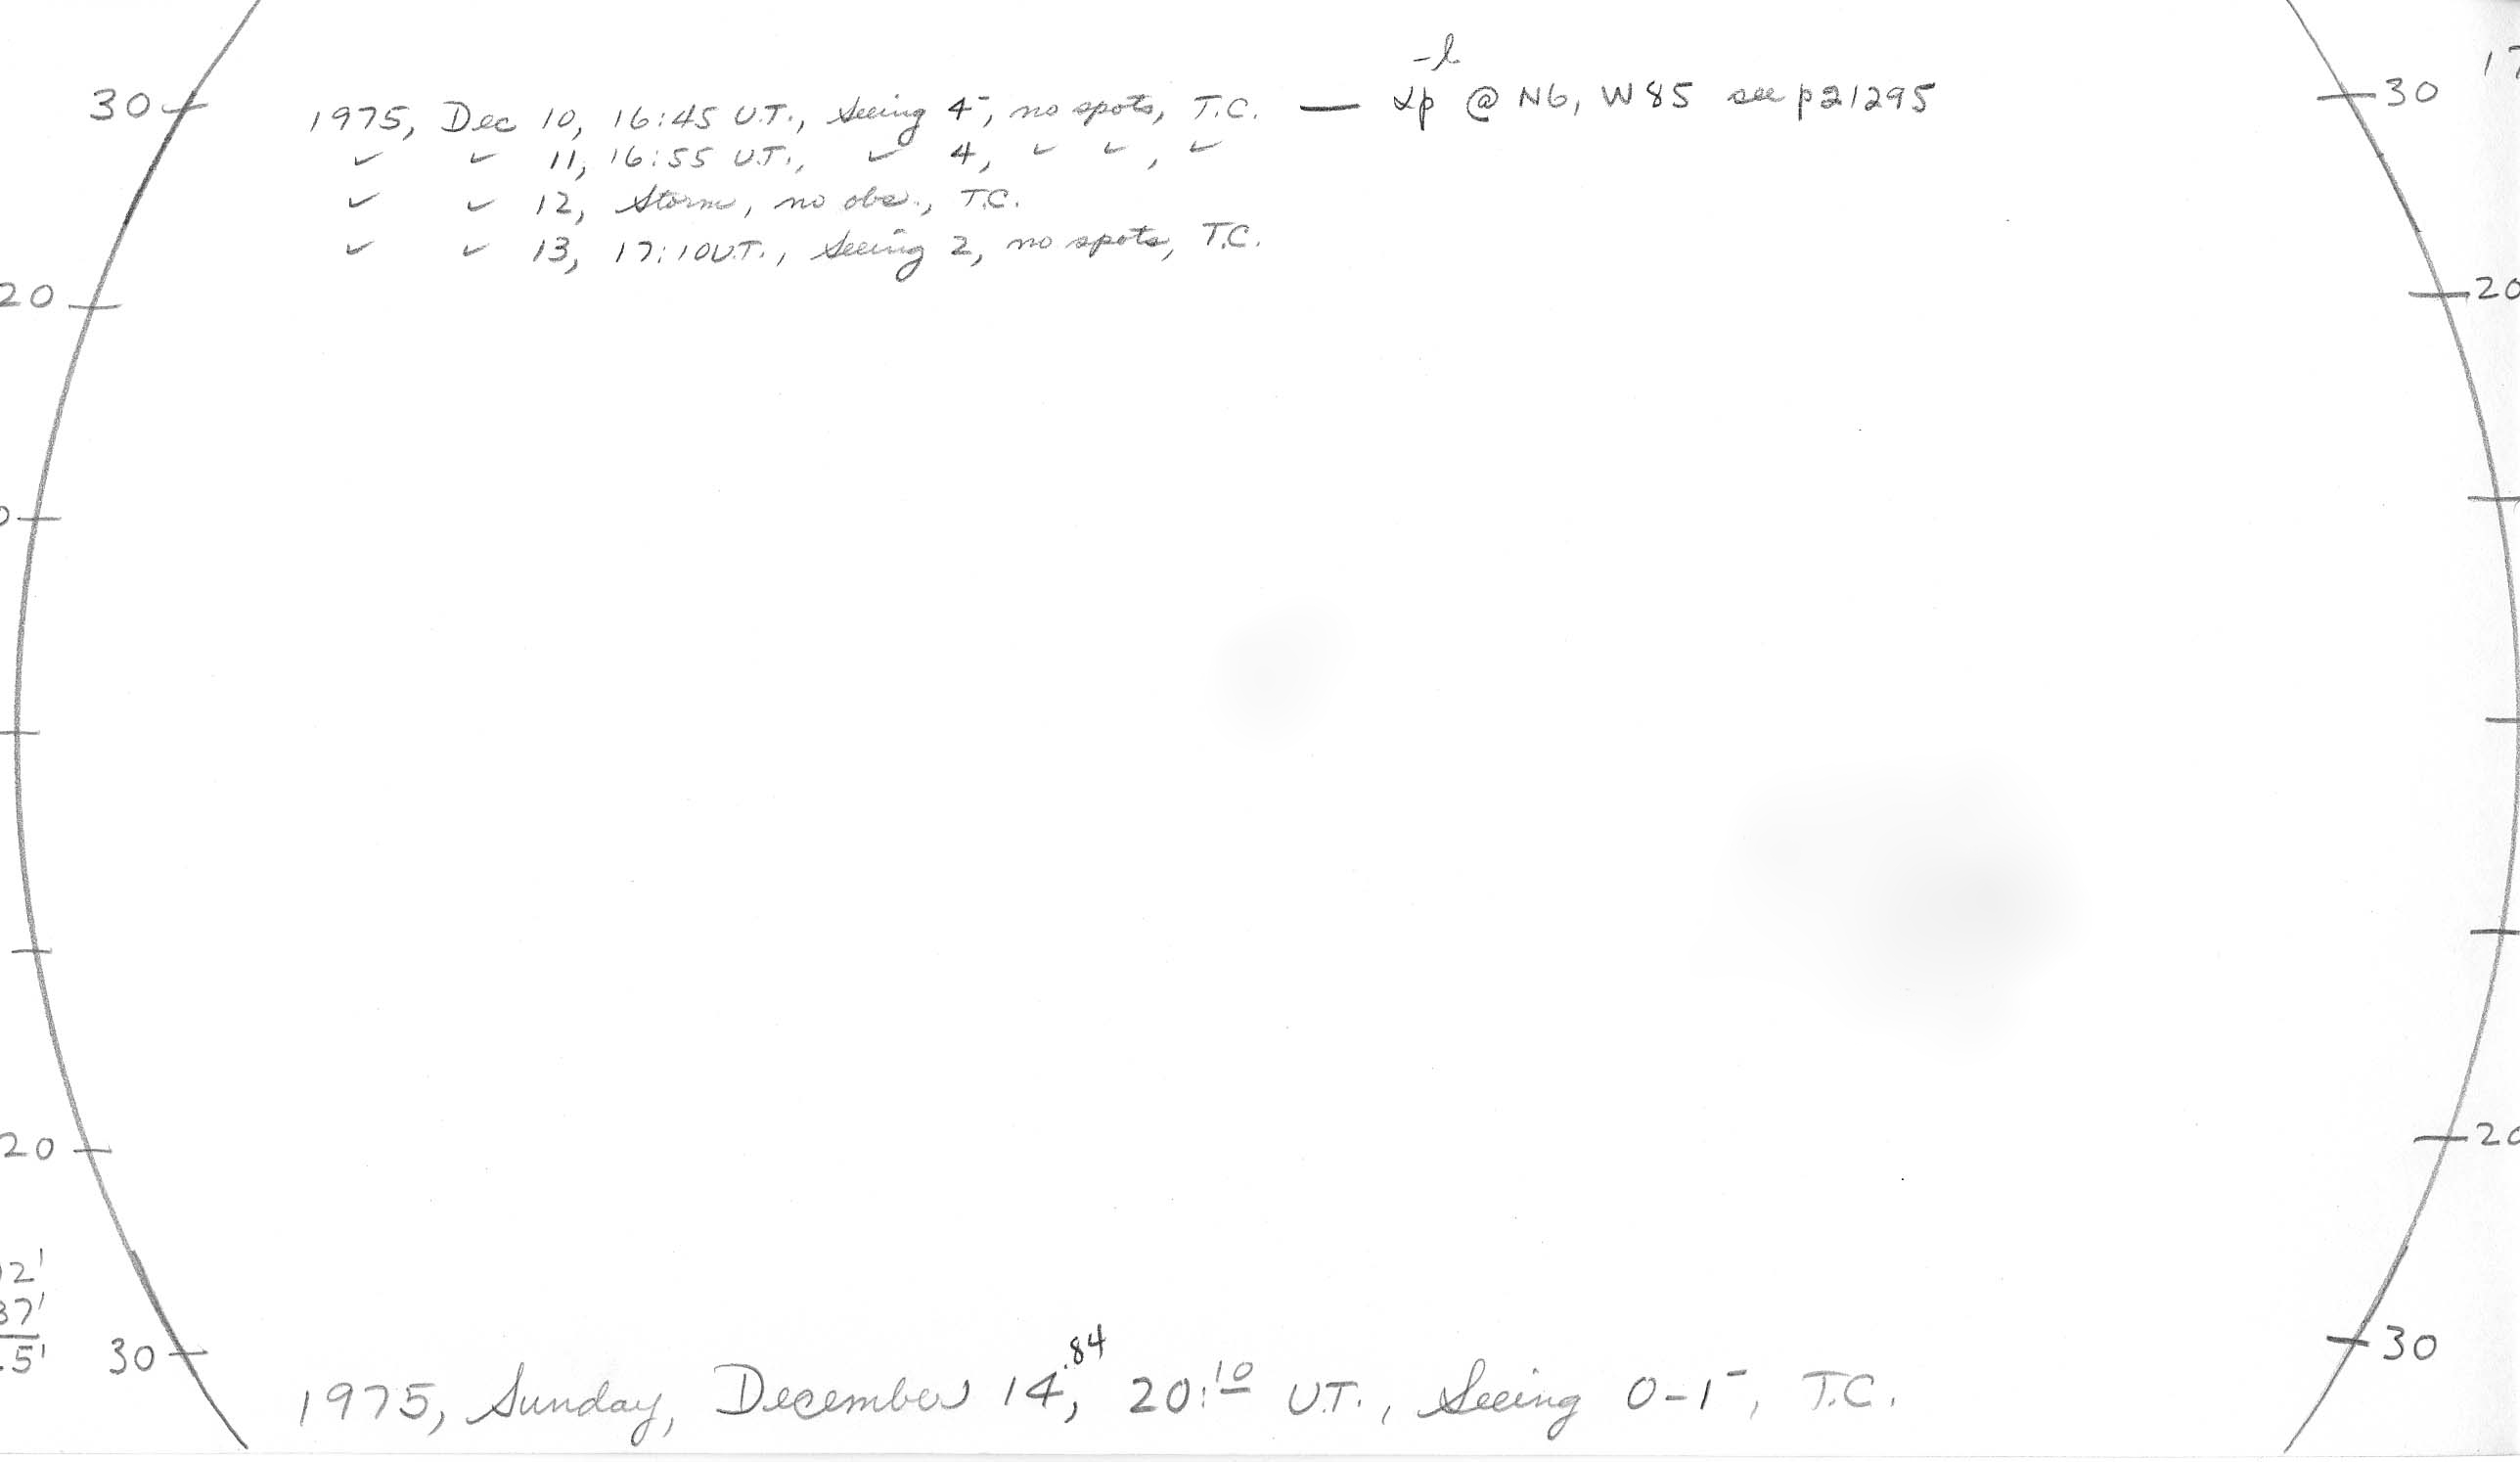 -l
30 1975, Dec 10, 16:45 U.T., Seeing 4-, no spots, T.C. — αp @ N6, W85 see p21295 30 17
✓ ✓ 11, 16:55 U.T., ✓ 4, ✓ ✓, ✓
✓ ✓ 12, Storm, no obs., T.C.
✓ ✓ 13, 17:10 U.T., Seeing 2, no spots, T.C.
20 20
0
20 20
12'
37'
.5' 30 30
1975, Sunday, December 14.84, 20:10 U.T., Seeing 0-1-, T.C.